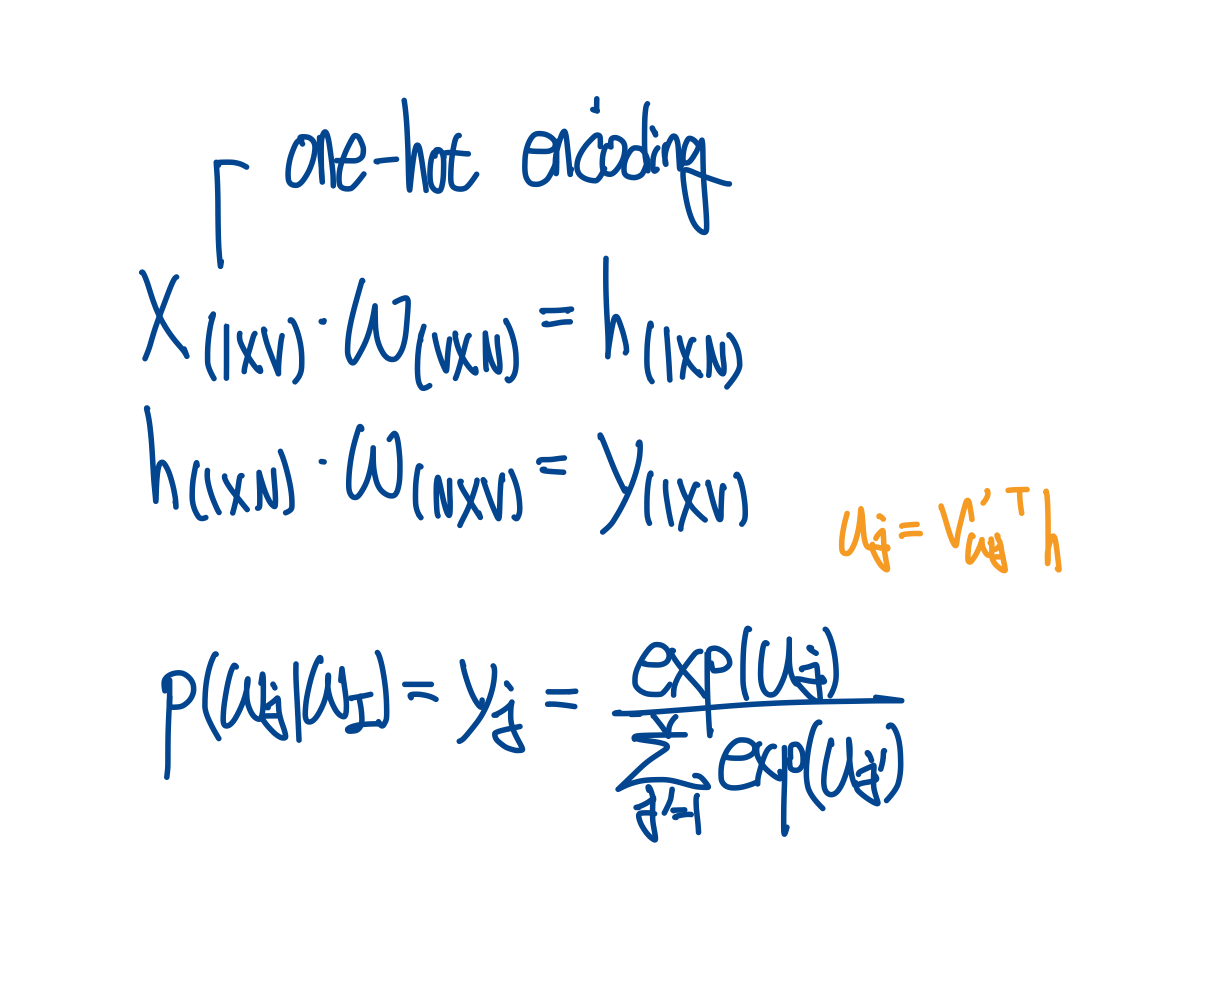 one-hot encoding
X(1XV) · W(VXN) = h(1XN)
h(1XN) · W(NXV) = y(1XV)
uj = V'wjᵀ h
p(wj|wI) = yj = exp(uj) / Σ j'=1 V exp(uj')